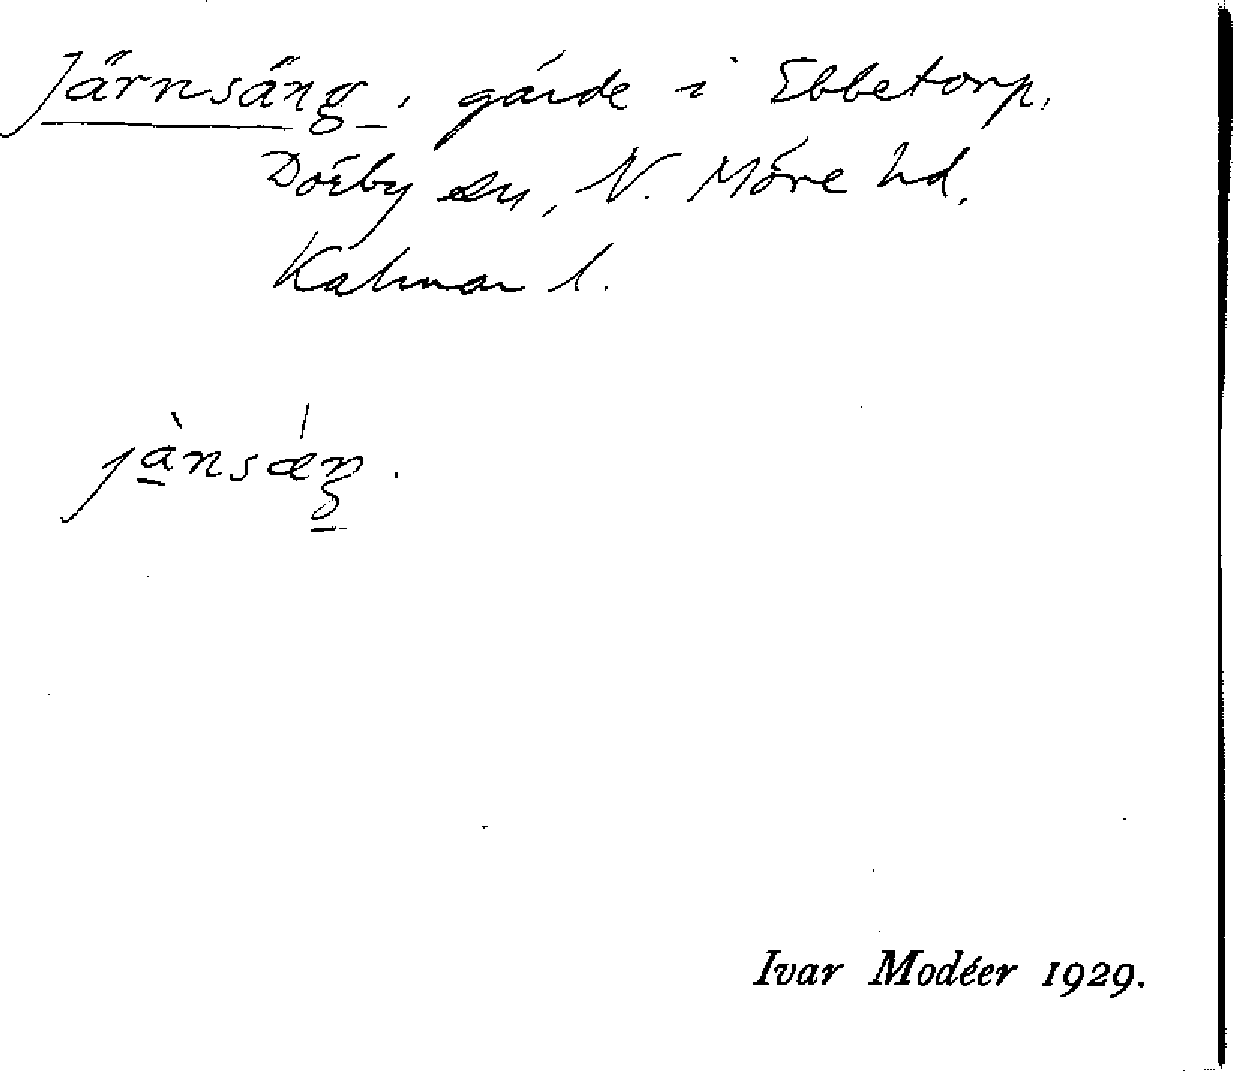 Järnsäng, gärde i Ebbetorp,
Dörby sn, N. Möre hd,
Kalmar l.
jànsæŋ.
Ivar Modéer 1929.